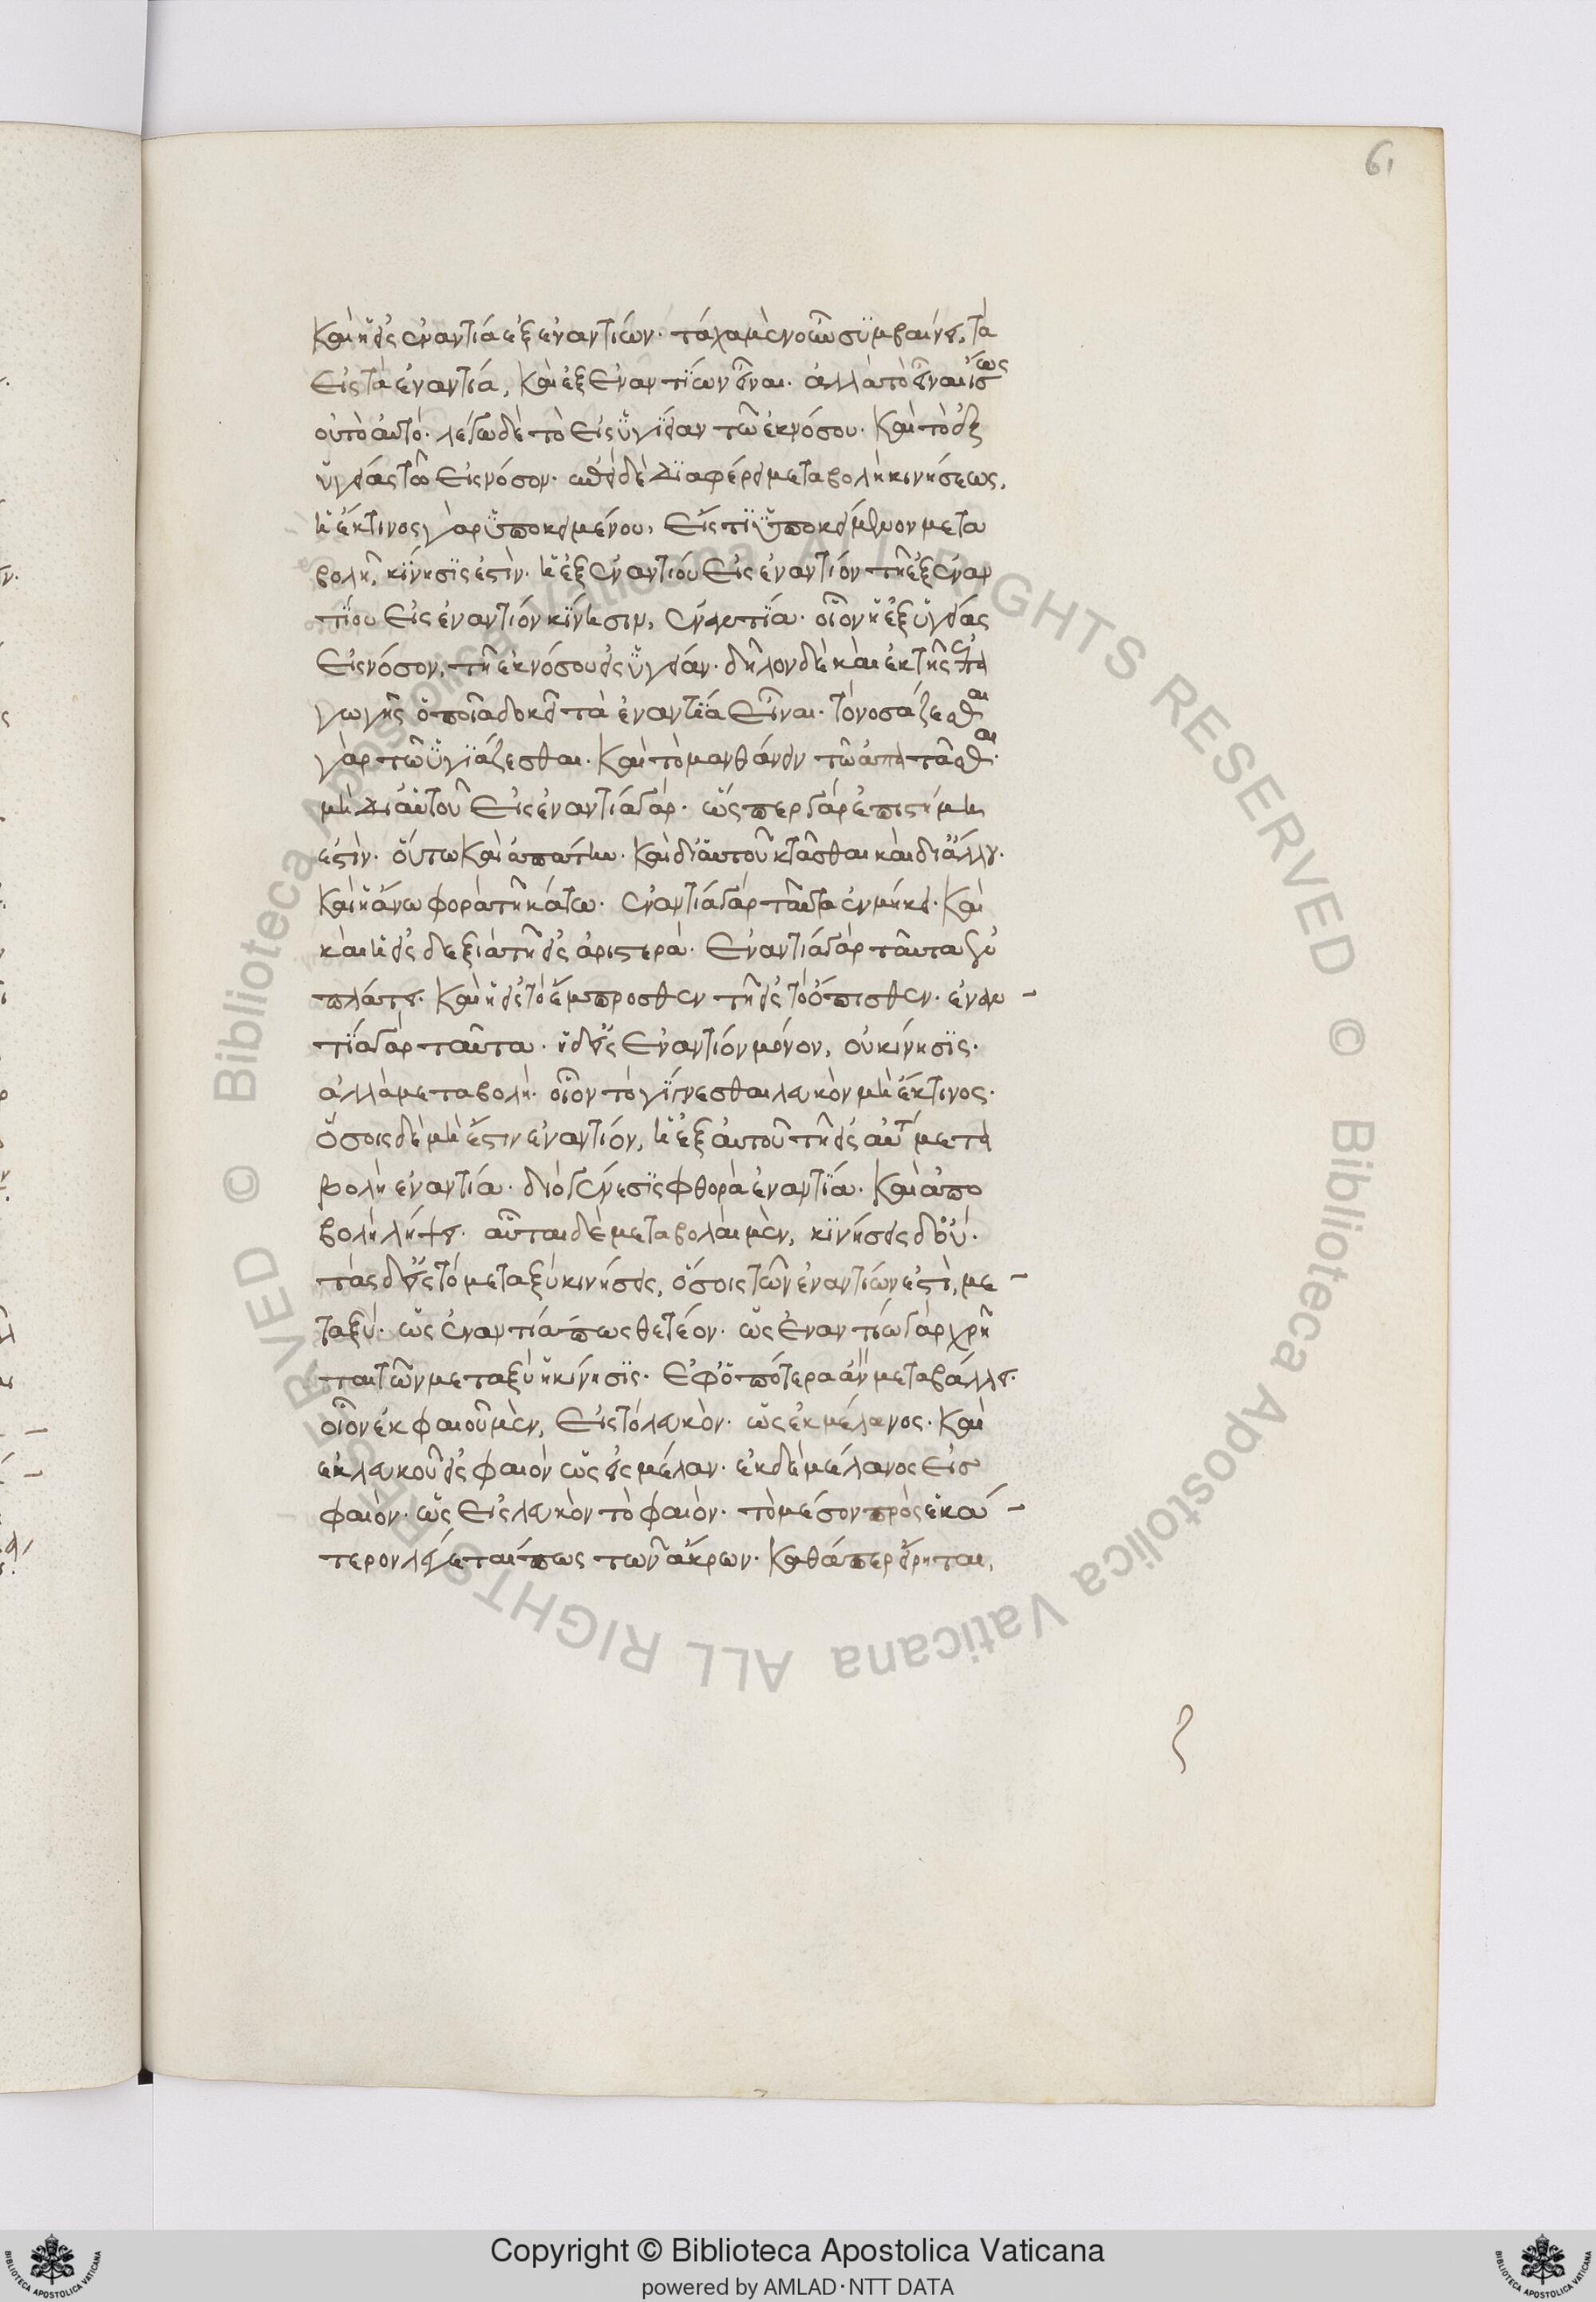 61
καὶ ἡ εἰς ἐναντία ἐξ ἐναντίων· τάχα μὲν οὖν συμβαίνει, τὰ
εἰς τὰ ἐναντία, καὶ ἐξ ἐναντίων εἶναι· ἀλλὰ τὸ εἶναι ἴσως
οὐ τὸ αὐτό· λέγω δὲ τὸ εἰς ὑγίειαν τῶ ἐκ νόσου· καὶ τὸ ἐξ
ὑγείας τῶ εἰς νόσον· ἐπεὶ δὲ διαφέρει μεταβολὴ κινήσεως,
ἡ ἔκ τινος γὰρ ὑποκειμένου, εἴς τι ὑποκείμενον μετα
βολὴ, κίνησις ἐστὶν· ἡ ἐξ ἐναντίου εἰς ἐναντίον τῆ ἐξ ἐναν
τίου εἰς ἐναντίον κίνησιν, ἐναντία· οἷον ἡ ἐξ ὑγείας
εἰς νόσον, τῆ ἐκ νόσου εἰς ὑγείαν· δῆλον δὲ καὶ ἐκ τῆς ἐπα
γωγῆς ὁποῖα δοκεῖ τὰ ἐναντία εἶναι· τὸ νοσάζεσθαι
γὰρ τῶ ὑγιάζεσθαι· καὶ τὸ μανθάνειν τῶ ἀπατᾶσθαι·
μὴ δι αὑτοῦ εἰς ἐναντία γάρ· ὥσπερ γὰρ ἐπιστήμη
ἐστὶν· οὕτω καὶ ἀπάτην· καὶ δι αὑτοῦ κτᾶσθαι καὶ δι ἄλλου·
καὶ ἡ ἄνω φορὰ τῆ κάτω· ἐναντία γὰρ ταῦτα ἐν μήκει· καὶ
καὶ ἡ εἰς δεξιὰ τῆ εἰς ἀριστερά· ἐναντία γὰρ ταῦτα ἐν
πλάτει· καὶ ἡ εἰς τὸ ἔμπροσθεν τῆ εἰς τὸ ὄπισθεν· ἐναν-
τία γὰρ ταῦτα· ἡ δ εἰς ἐναντίον μόνον, οὐ κίνησις·
ἀλλὰ μεταβολή· οἷον τὸ γίνεσθαι λευκὸν μὴ ἔκ τινος·
ὅσοις δὲ μὴ ἔστιν ἐναντίον, ἡ ἐξ αὐτοῦ τῆ εἰς αὐτ μετα
βολὴ ἐναντία· διὸ γένεσις φθορᾶ ἐναντία· καὶ ἀπο
βολὴ λήψει· αὗται δὲ μεταβολαὶ μὲν, κινήσεις δ οὔ·
τὰς δ εἰς τὸ μεταξὺ κινήσεις, ὅσοις τῶν ἐναντίων ἐστὶ, με-
ταξύ· ὡς ἐναντία πως θετέον· ὡς ἐναντίω γὰρ χρῆ
ται τῶ μεταξὺ ἡ κίνησις· ἐφ ὁπότερα ἂν μεταβάλλει·
οἷον ἐκ φαιοῦ μὲν, εἰς τὸ λευκὸν· ὡς ἐκ μέλανος· καὶ
ἐκ λευκοῦ εἰς φαιὸν ὡς εἰς μέλαν· ἐκ δὲ μέλανος εἰσ
φαιόν· ὡς εἰς λευκὸν τὸ φαιὸν· τὸ μέσον πρὸς ἑκά-
τερον λέγεταί πως τῶν ἄκρων· καθάπερ εἴρηται,